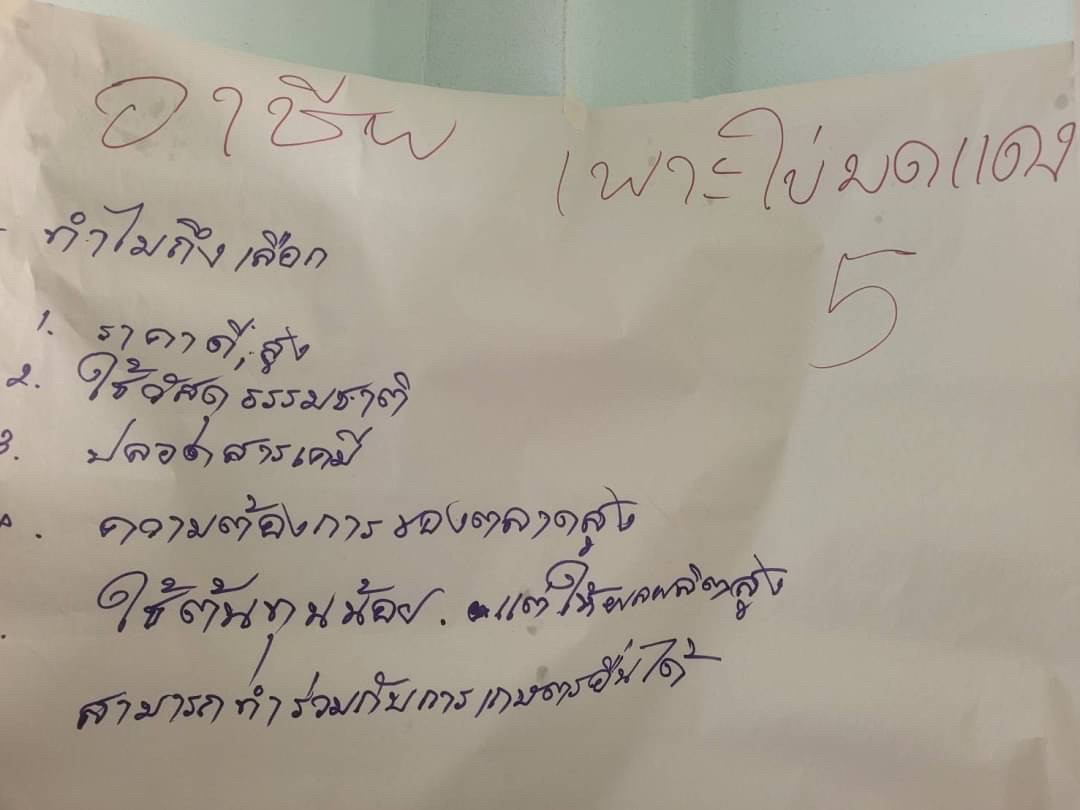 อาชีพ เพาะไข่มดแดง
5
- ทำไมถึงเลือก
1. ราคาดี, สูง
2. ใช้วัสดุธรรมชาติ
3. ปลอดสารเคมี
. ความต้องการของตลาดสูง
. ใช้ต้นทุนน้อย. แต่ให้ผลผลิตสูง
สามารถทำร่วมกับการเกษตรอื่นได้